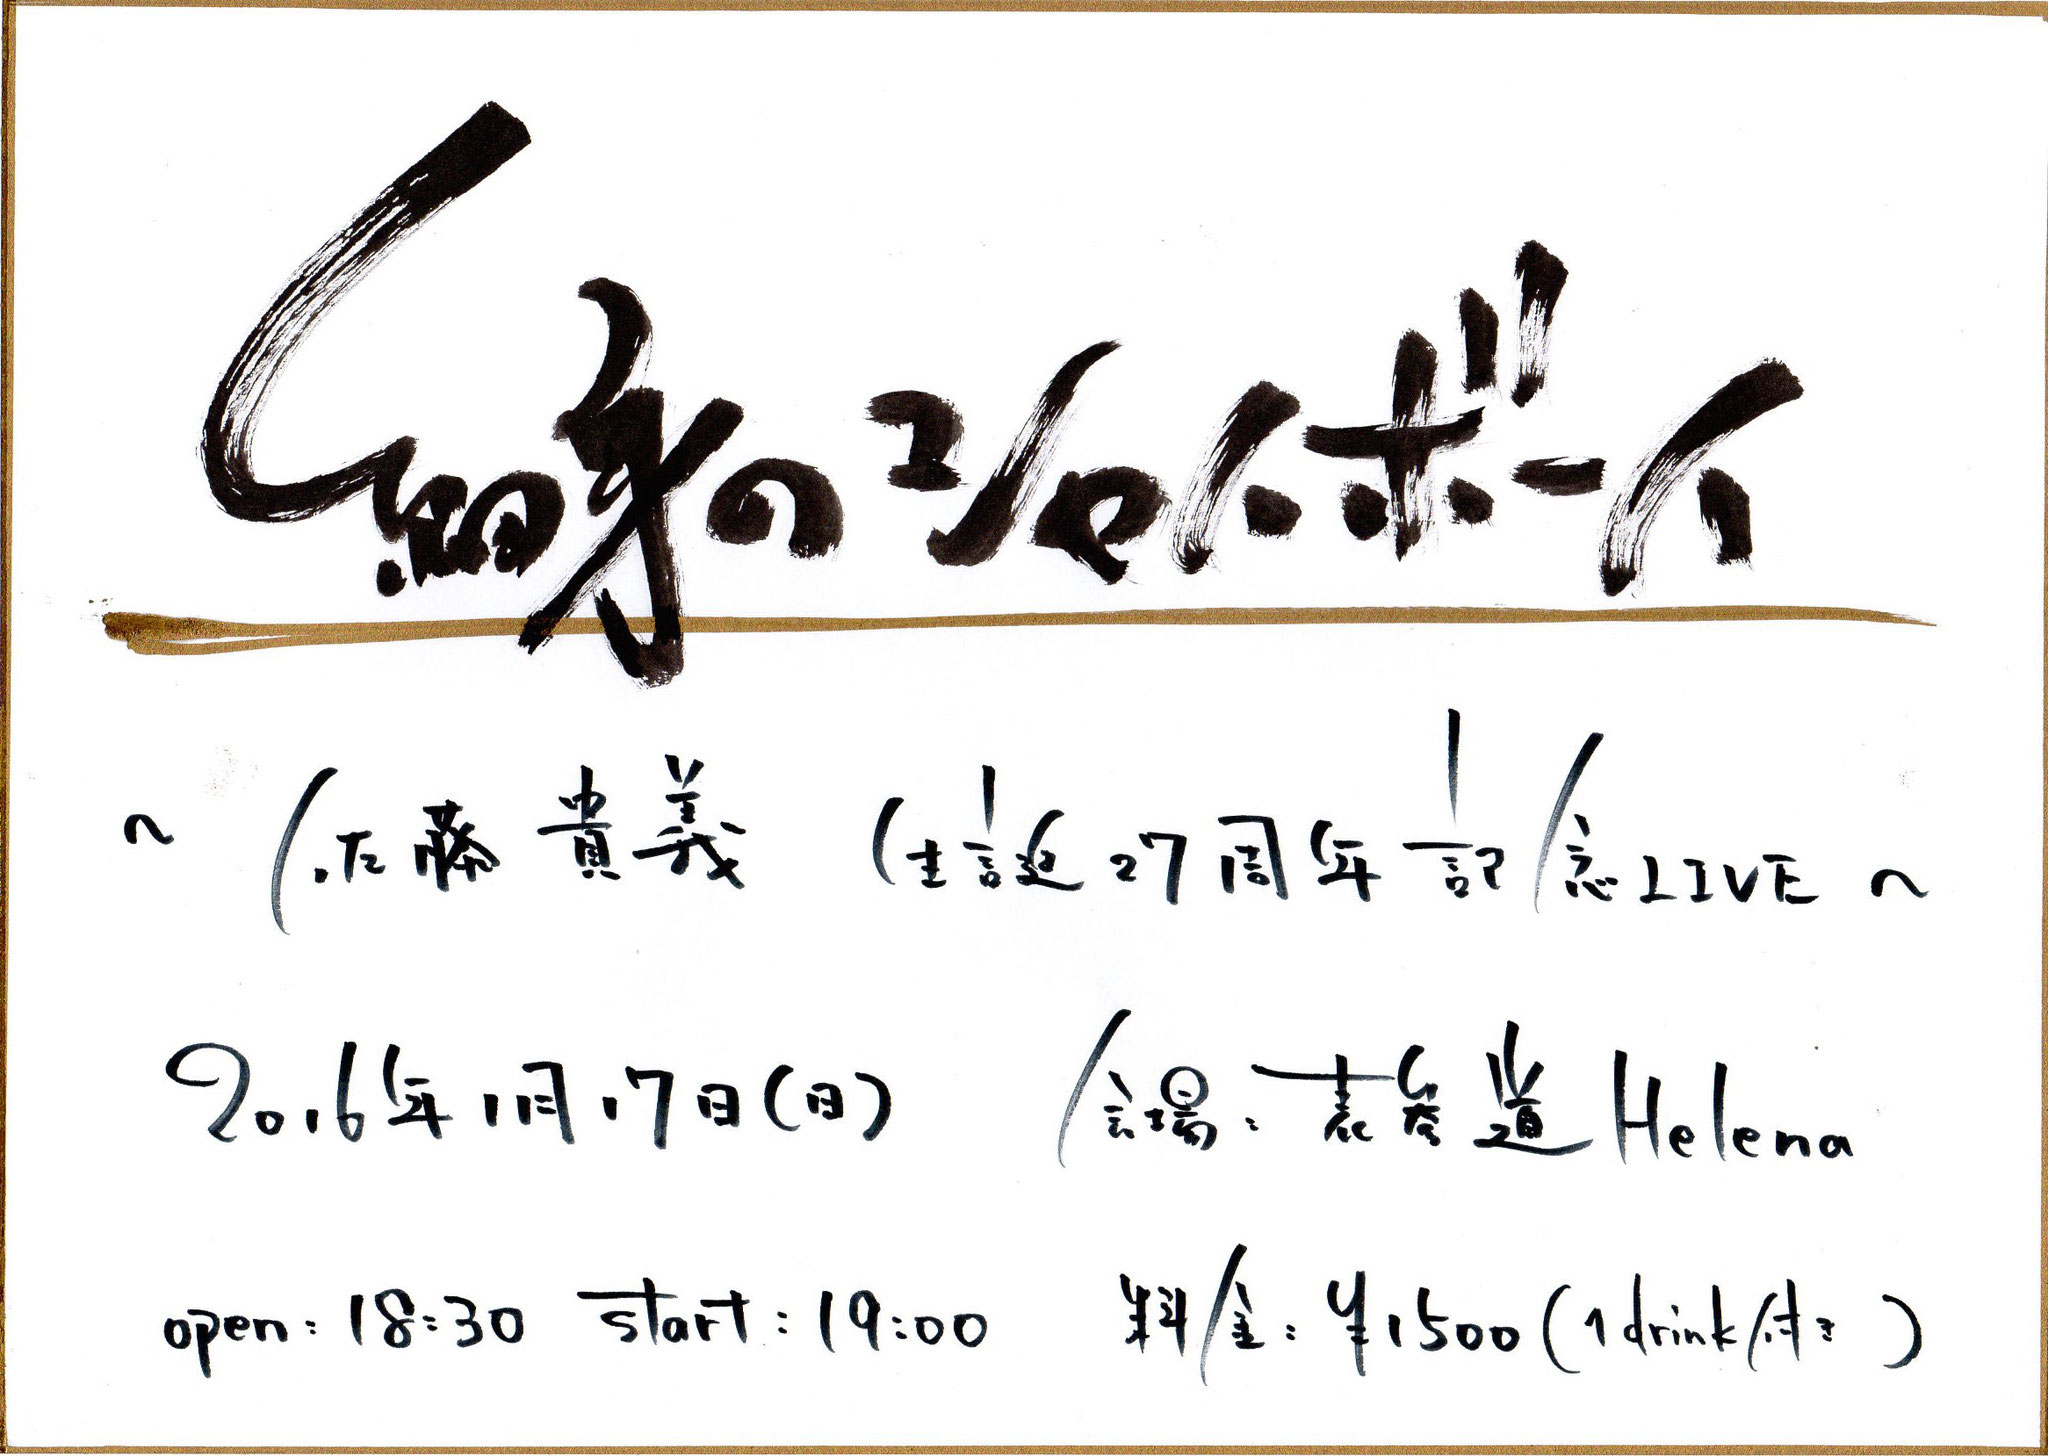 細身のシャイボーイ
〜 佐藤貴義 生誕27周年記念LIVE 〜
2016年1月17日(日) 会場:表参道Helena
open:18:30 start:19:00 料金:¥1500(1drink付き)